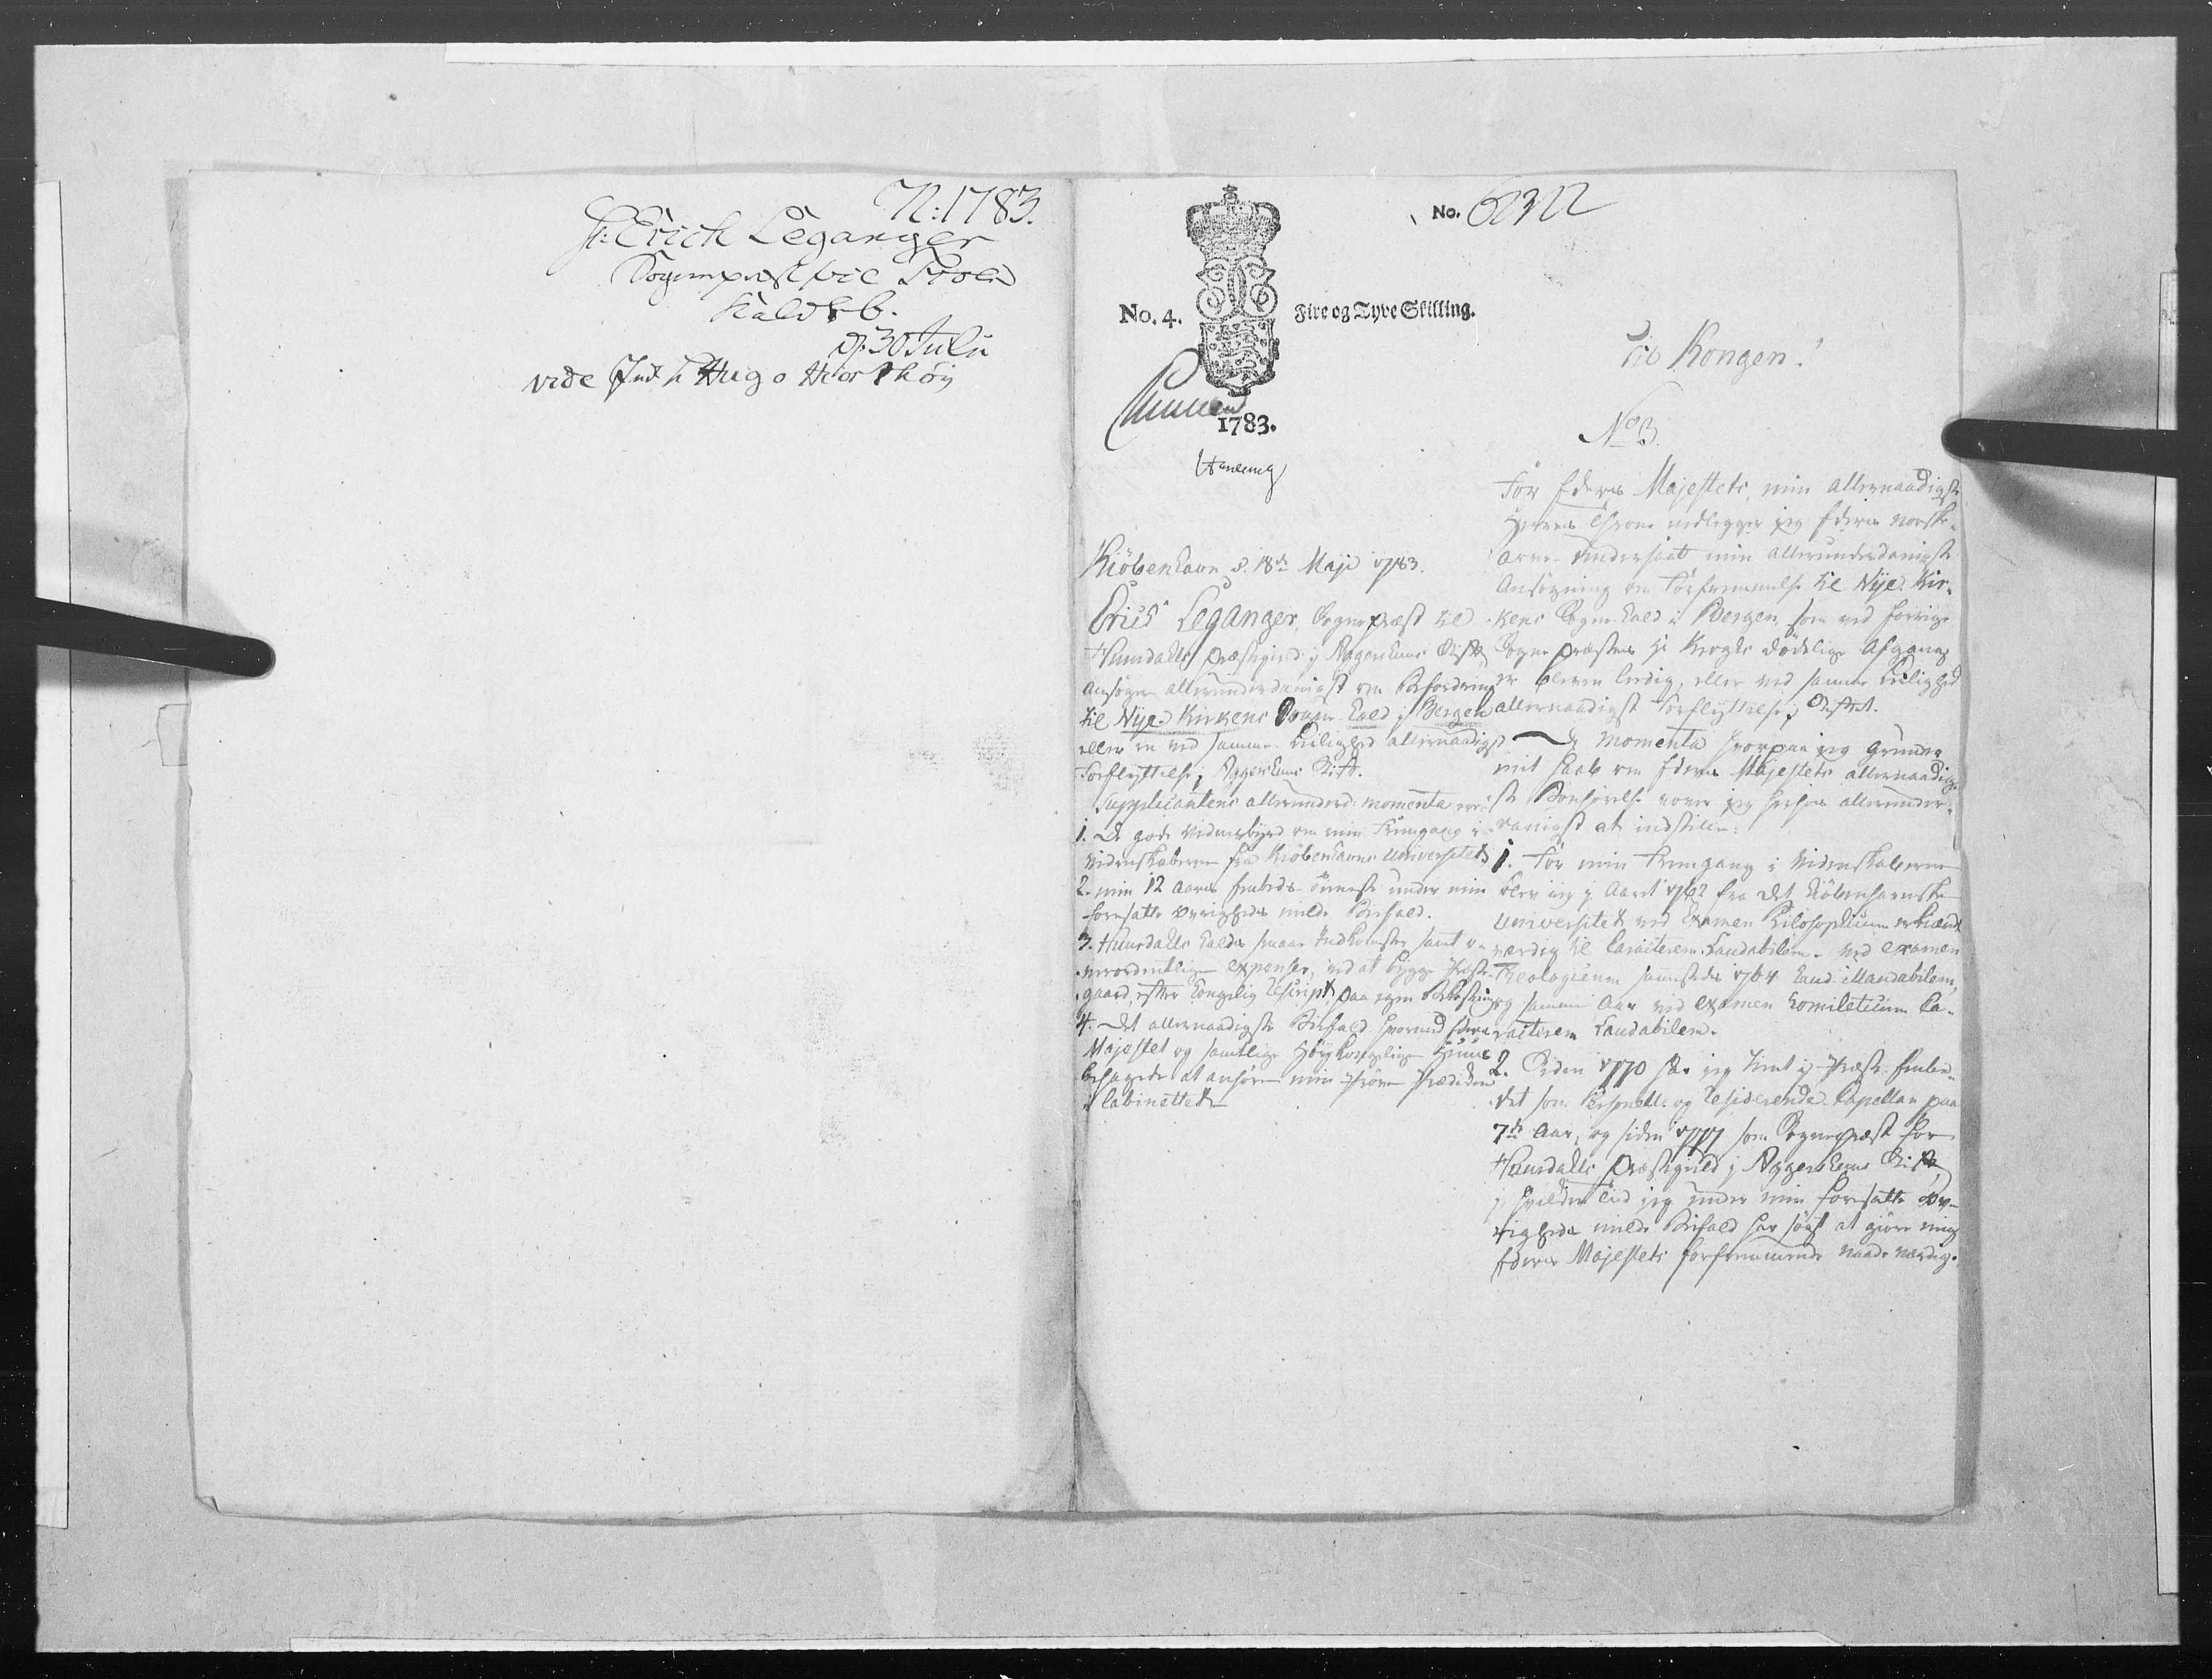 N: 1783.
Hr: Erich Leganger
Sognepræst til
Kald b.
D: 30 Julii
vide Ind: h Hugo Hiorthöy
No. 4.
Fire og Tyve Skilling.
1783.
No. 6232
Til Kongen!
No 3.
Kiöbenhavn d. 18de Maji 1783.
Erich Leganger, Sognepræst til
Huurdals Præstegield i Aggershuus Stift,
ansøger allerunderdanigst om Befordring
til Nye-Kirkens Sogne-Kald i Bergen
eller en ved samme Leilighed allernaadigst
Forflyttelse i Aggershuus Stift.
Supplicantens allerunderd: momenta ere:
1. De gode Vidnesbyrd om min Fremgang i
Videnskaberne fra Kiöbenhavns Universitet
2. min 12 Aars Embeds-Tieneste under min
foresatte Øvrigheds milde Bifald.
3. Huurdals Kalds smaae Indkomster samt u-
overordentlige expenser, ved at bygge Præste-
gaard, efter Kongelig Rescript, paa egen Bekostning
4. Det allernaadigste Bifald hvormed Eders
Majestet og samtlige Høy Kongelige Huus
behagede at anhøre min Prøve Prædiken
i Cabinettet
For Eders Majestets, min allernaadigste
Herres Throne nedlegger jeg Eders norske
arve-Undersaat min allerunderdanigste
Ansøgning om Forfremmelse til Nye-Kir-
kens Sogne-Kald i Bergen, som ved forrige
Sogne præstens Hr Kroghs dødelige Afgang
er bleven ledig, eller ved samme Leilighed
allernaadigst Forflyttelse i Stiftet.
De Momenta hvorpaa jeg grunder
mit Haab om Eders Majestets allernaadig-
ste Bønhørelse vover jeg herhos allerunder-
danigst at indstille:
1. For min Fremgang i Videnskaberne
blev jeg i Aaret 1762 fra det Kiöbenhavnske
Universitet ved Examen Philosophicum erkiendt
værdig til Caracterem Laudabilem. Ved examen
Theologicum sammesteds 1764 haud illaudabilem,
og samme Aar ved examen homileticum Ca-
racterem Laudabilem.
2. Siden 1770 har jeg tient i Præste-Embe-
det som Personell: og Residerende-Capellan paa
7de Aar, og siden 1777 som Sognepræst for
Huurdals Præstegield i Aggershuus Stift,
i hvilken Tiid jeg under min foresatte Øv-
righeds milde Bifald har søgt at giøre mig
Eders Majestets forfremmende Naade værdig.